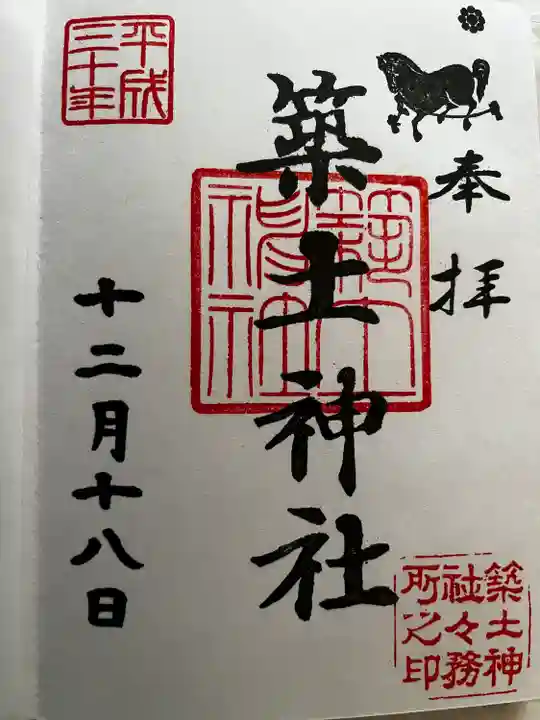 奉拝
築土神社
築土神社
平成三十年
十二月十八日
築土神
社々務
所之印